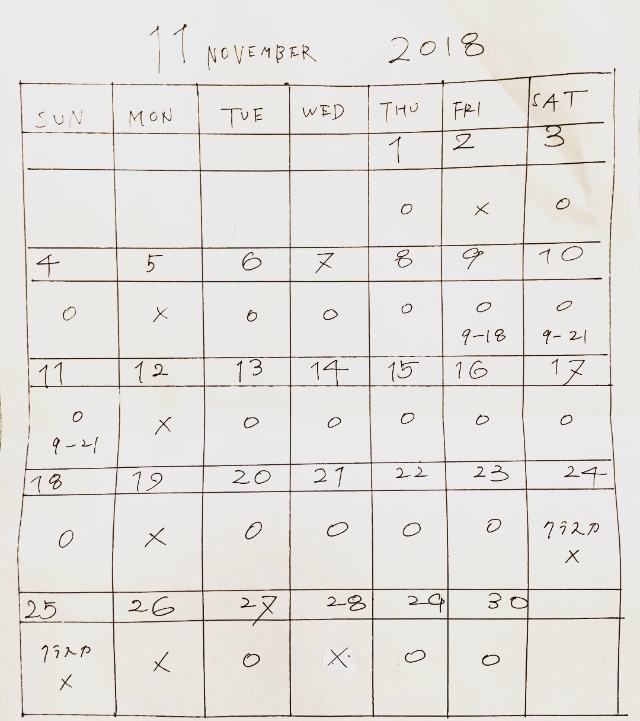 11 NOVEMBER 2018
SUN MON TUE WED THU FRI SAT
1 2 3
○ × ○
4 5 6 7 8 9 10
○ × ○ ○ ○ ○ ○
9-18 9-21
11 12 13 14 15 16 17
○ × ○ ○ ○ ○ ○
9-21
18 19 20 21 22 23 24
○ × ○ ○ ○ ○ クラスカ
×
25 26 27 28 29 30
クラスカ × ○ × ○ ○
×